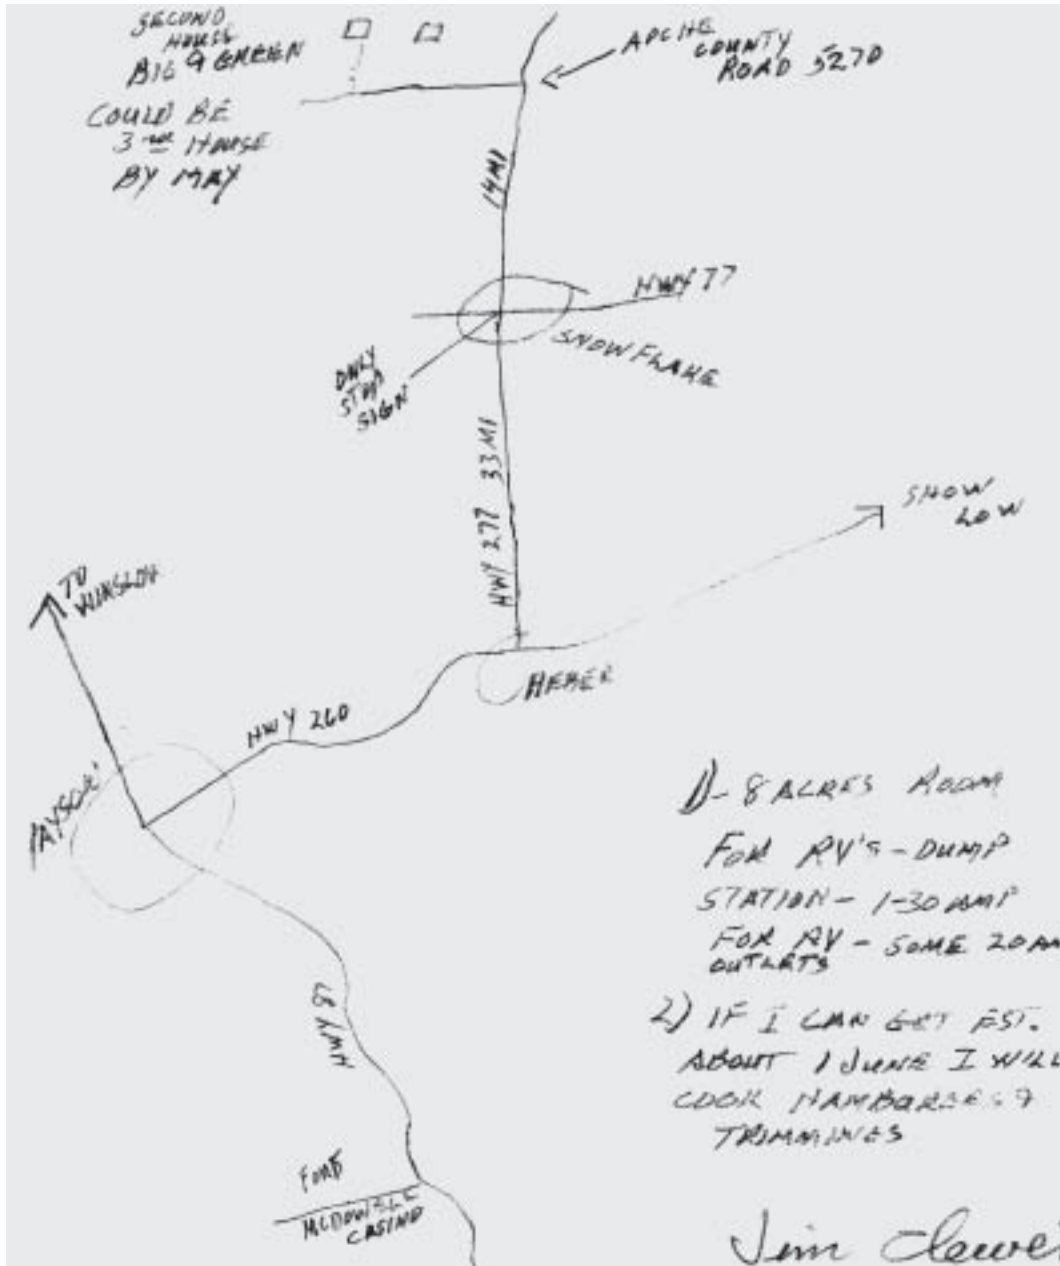 SECOND
HOUSE
BIG & GREEN
COULD BE
3 RD HOUSE
BY MAY
APCHE
COUNTY
ROAD 5270
14 MI
HWY 77
SNOWFLAKE
ONLY
STOP
SIGN
HWY 277 33 MI
SHOW
LOW
TO
WINSLOW
HEBER
HWY 260
PAYSON
HWY 87
FORT
MCDOWELL
CASINO
1) - 8 ACRES ROOM
FOR RV'S - DUMP
STATION - 1-30 AMP
FOR RV - SOME 20 AM
OUTLETS
2) IF I CAN GET EST.
ABOUT 1 JUNE I WILL
COOK HAMBURGERS &
TRIMMINGS
Jim